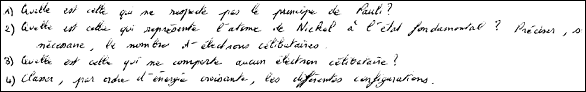 1) Quelle est celle qui ne respecte pas le principe de Pauli ?
2) Quelle est celle qui représente l'atome de Nickel à l'état fondamental ? Préciser, si
nécessaire, le nombre d'électrons célibataires.
3) Quelle est celle qui ne comporte aucun électron célibataire ?
4) Classer, par ordre d'énergie croissante, les différentes configurations.